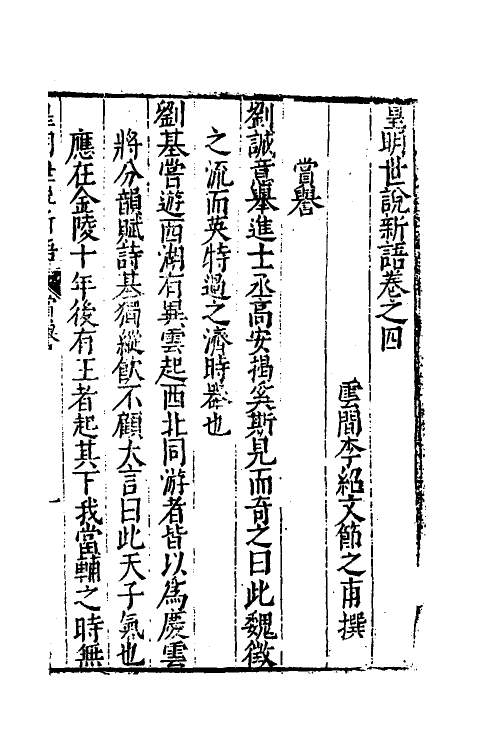 皇明世說新語卷之四
雲間李紹文節之甫撰
賞譽
劉誠意舉進士丞高安揭奚斯見而奇之曰此魏徵
之流而英特過之濟時器也
劉基嘗遊西湖有異雲起西北同游者皆以為慶雲
將分韻賦詩基獨縱飲不顧大言曰此天子氣也
應在金陵十年後有王者起其下我當輔之時無